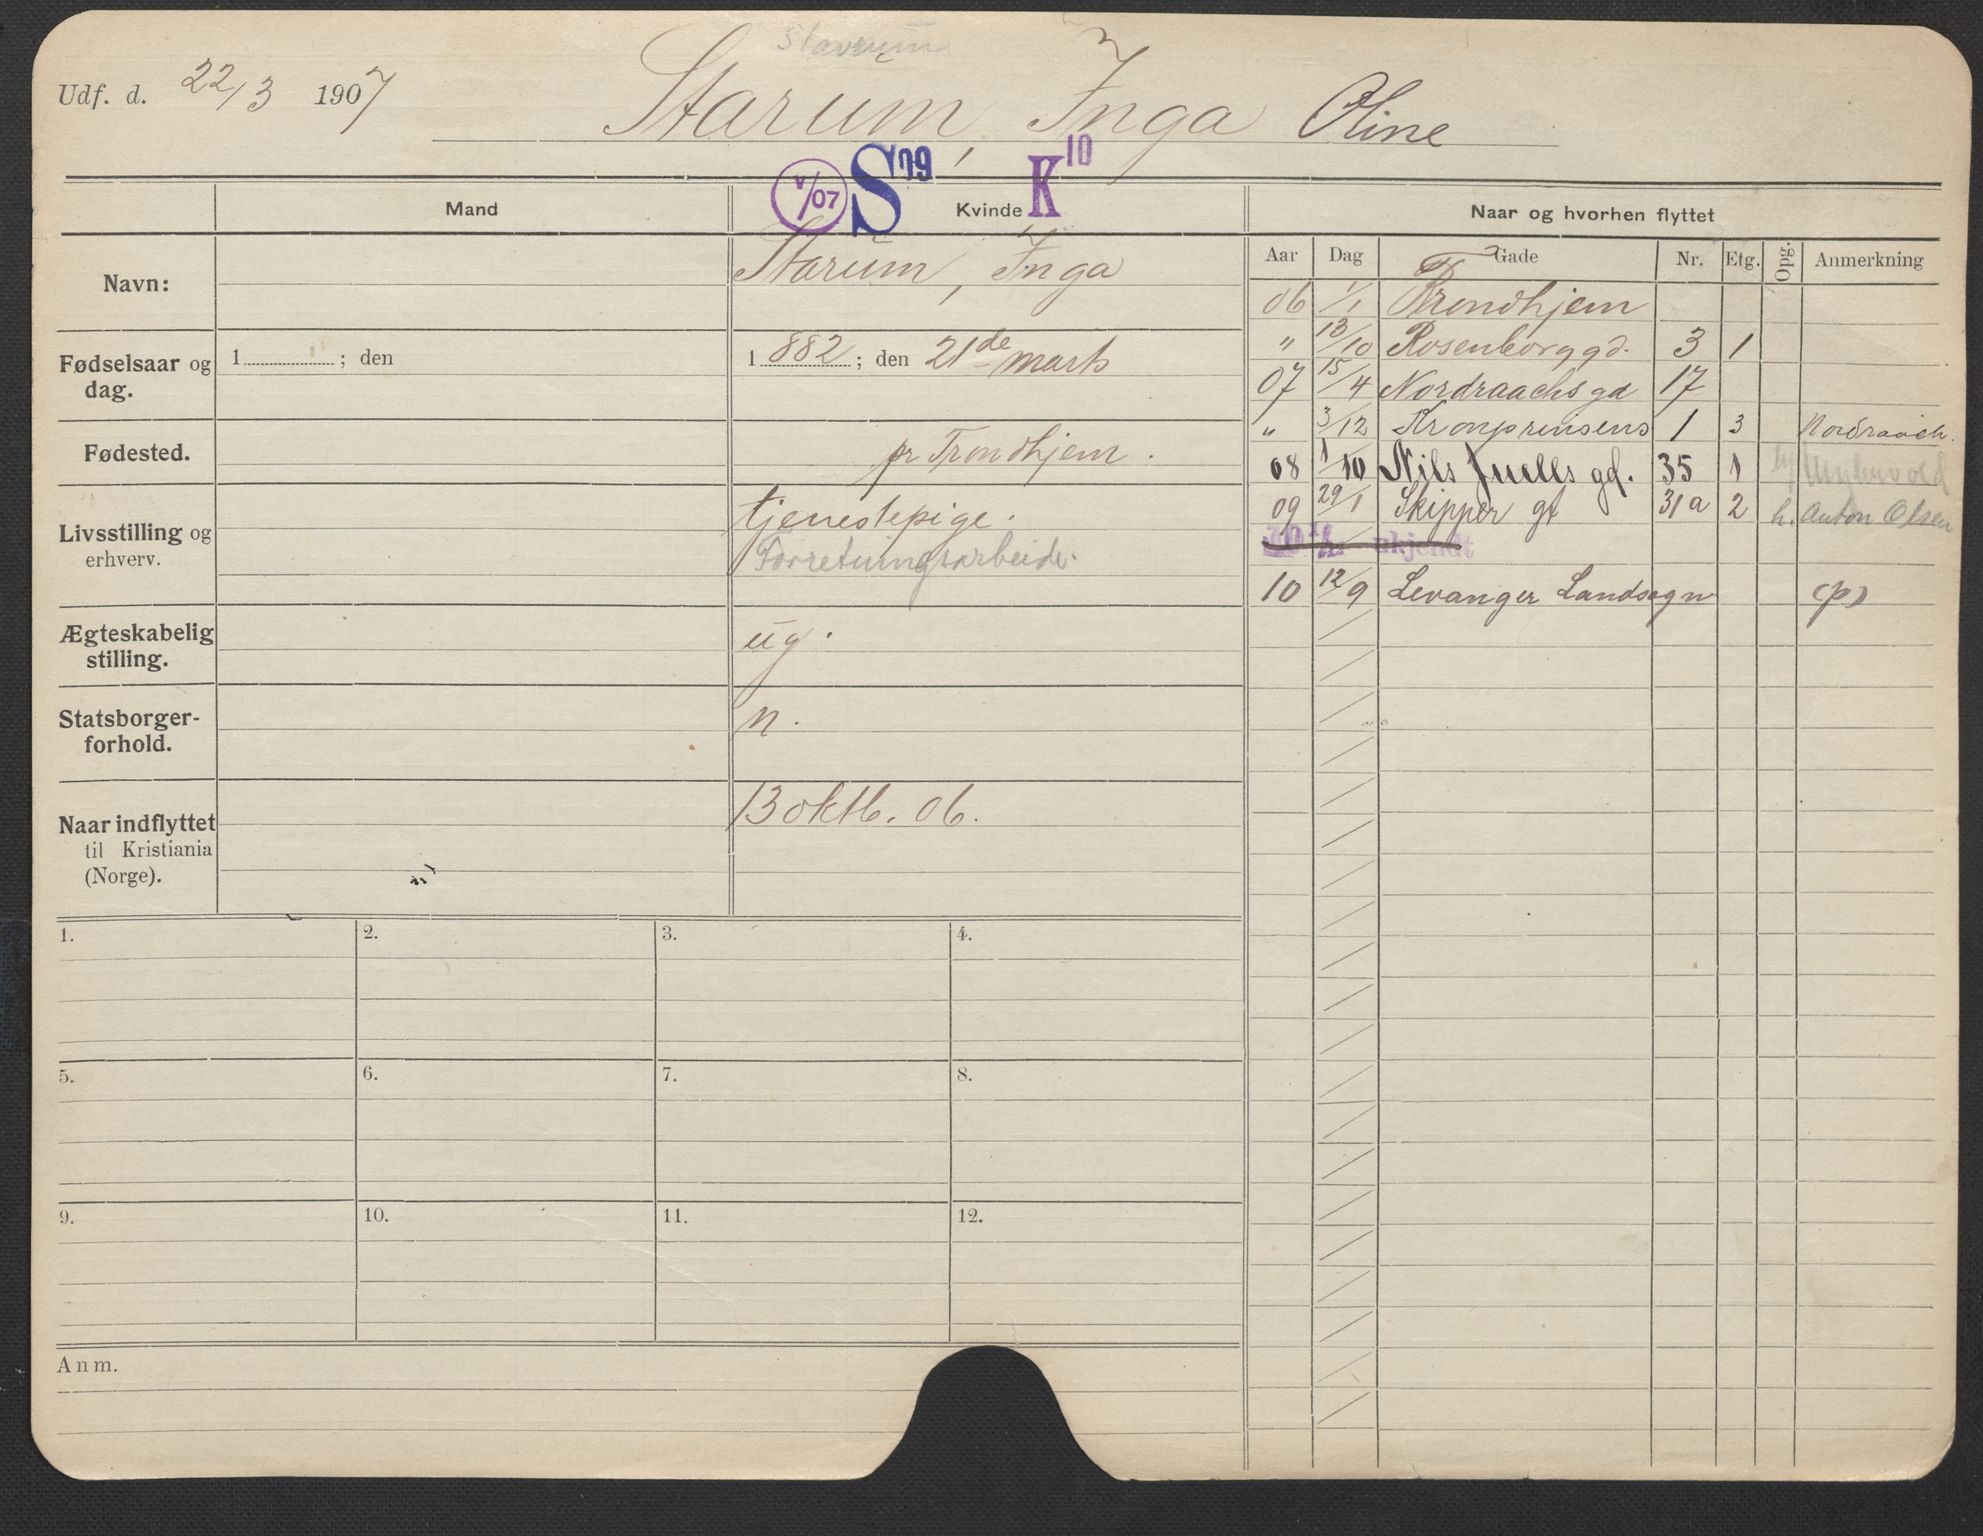 Stavrum
Udf. d. 22/3 1907 Starum, Inga Oline
V/07 S 09 K 10
Mand Kvinde Naar og hvorhen flyttet
Aar Dag Gade Nr. Etg. Opg. Anmerkning
Navn: Starum, Inga
Fødselsaar og dag. 1 ; den
1 882 ; den 21de marts
Fødested. pr Trondhjem.
Livsstilling og erhverv. tjenestepige.
Forretningsarbeide.
Ægteskabelig stilling. ug.
Statsborgerforhold. n.
Naar indflyttet til Kristiania (Norge). 13 oktb. 06.
06 1/1 Trondhjem
" 13/10 Rosenborggd. 3 1
07 15/4 Nordraachsgd 17
" 3/12 Kronprinsens 1 3 Nordraach.
08 1/10 Nils Juells gd. 35 1
09 29/1 Skipper gt 31a 2 h. Anton Olsen
ukjendt
10 12/9 Levanger Landsogn (p)
1. 2. 3. 4.
5. 6. 7. 8.
9. 10. 11. 12.
Anm.